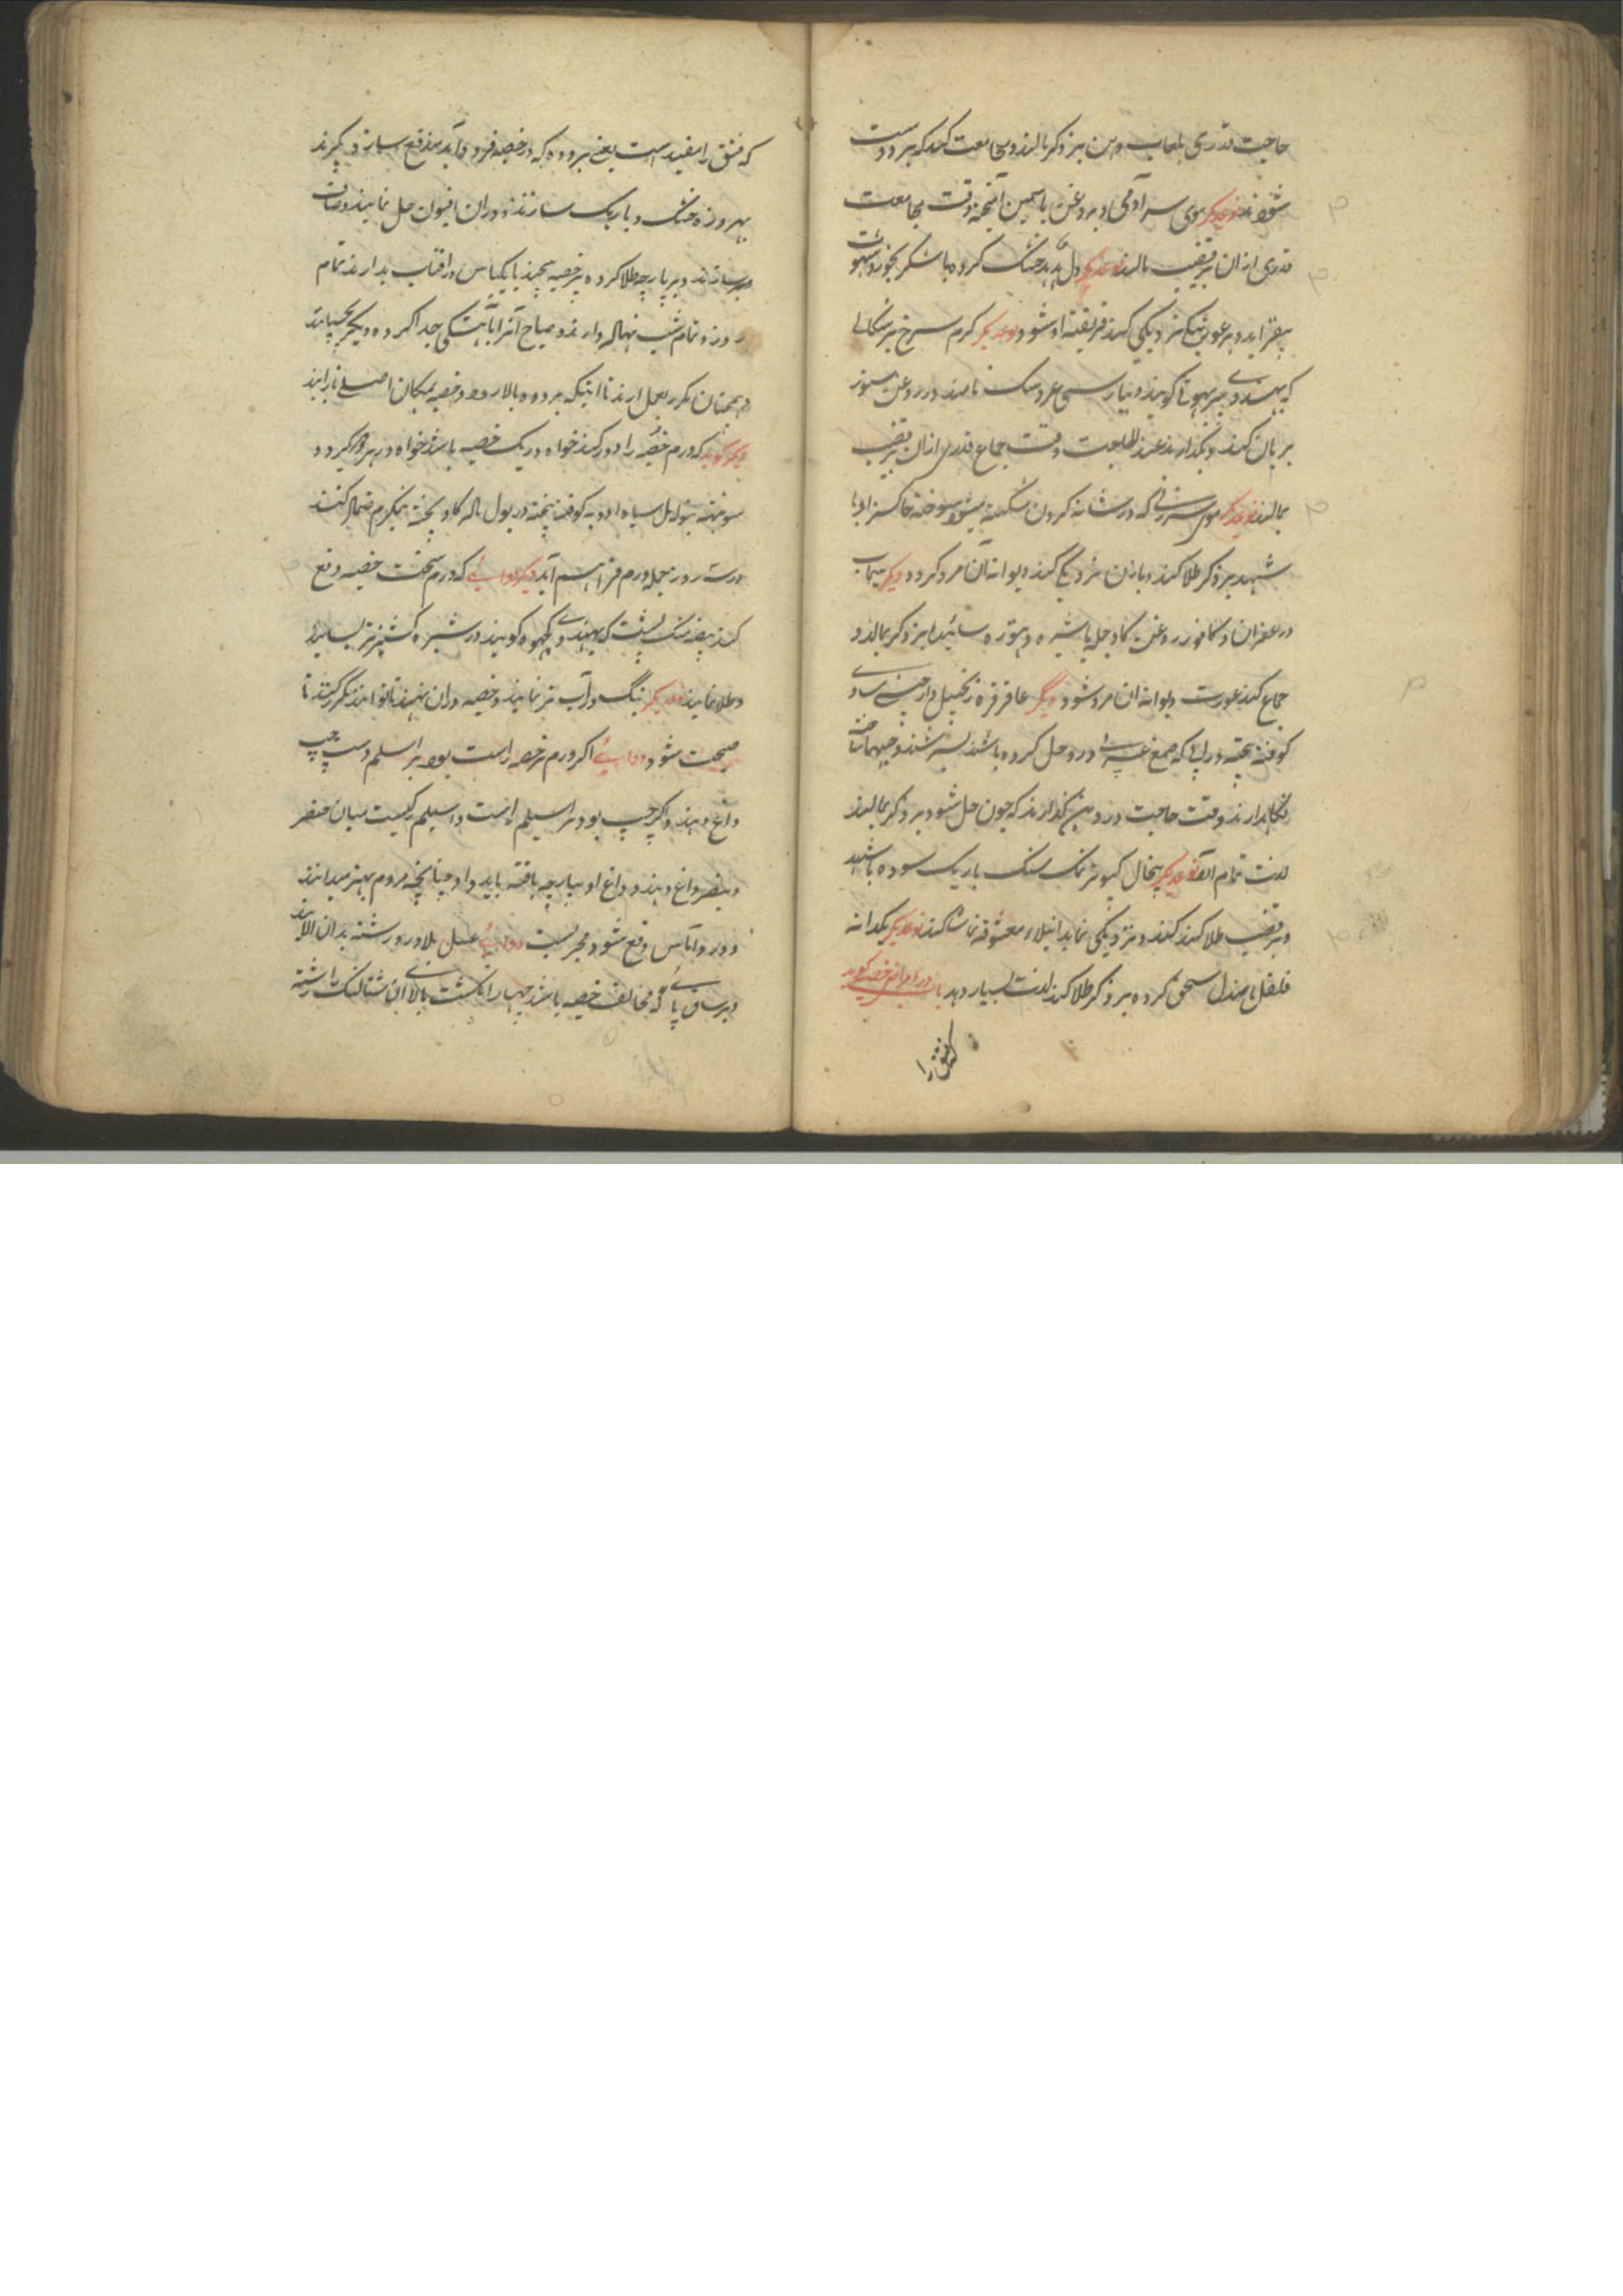 حاجت قدری بلعاب دهن بر ذکر مالند و مجامعت کند که هر دو مست
شوند نوعدیگر موی سر آدمی و بروغن یاسمین آمیخته وقت مجامعت
قدری ازان بر قضیب مالند نوعدیگر دل هدهد خشک کرده با شکر بخورد شهوت
بیفزاید و هر عورتیکه نزدیکی کند فریفته او شود نوعدیگر کرم سرخ برسکالی
که بهندوی بیربهوتی کویند و بپارسی عروسک نامند در روغن
بریان کنند و نکدارند عند الحاجت وقت جماع قدری ازان بر قضیب
بمالند نوعدیگر موی سر زنی که در شانه کردن شکسته میشود سوخته خاکستر او با
شهد بر ذکر طلا کند و با زن نزدیکی کند دیوانه آن مرد کردد دیکر سیماب
و زعفران و کافور روغن کاو جمله با شیره دهتوره سائیده بر ذکر بمالد و
جماع کند عورت دیوانه آن مرد شود دیگر عاقرقره زنجبیل دارچینی مساوی
کوفته بیخته در آبی که صمغ عربی درو حل کرده باشند بسرشند و حبها ساخته
نکاهدارند وقت حاجت در دهن کذارند که چون حل شود بر ذکر بمالند
لذت تمام آید نوعدیگر پیخال کبوتر نمک سنک باریک سوده با شهد
بر قضیب طلا کند و نزدیکی نماید معشوقه تماشا کند نوعدیگر یکدانه
فلفل با صندل سحق کرده بر ذکر طلا کند لذت بسیار دهد باب در امراض خصیه کوید
که فتق را مفید است یعنی بروده که در خصیه فرود آید دفع سازد بکیرند
بهروزه خشک و باریک سازند و دران افیون حل نمایند و صاف
سازند و بر پارچه طلا کرده بر خصیه بپیچند تا یکپاس در افتاب بدارند تمام
روز و تمام شب نهاله دارند و صباح آنرا بآهستکی جدا کرده دیکر بچسپانند
همچنان مکرر بعمل ارند تا اینکه بروده بالا رود و خصیه بمکان اصلی باز آید
دیکر کوید که ورم خصیه را دور کند خواه در یک خصیه باشد خواه در هر دو بکیرد
کوفته بیخته در بول ماده کاو پخته نیمکرم ضماد کنند
در سه روز جمله ورم فراهم آید دیکر دوائی که ورم سخت خصیه دفع
کند بیضه سنک پشت که بهندوی کچهوه کویند در شیره کشنیز تر بسایند
و طلا نمایند نوعدیکر بنک در آب تر نمایند و خصیه دران نهند تا توانند مکرر کنند تا
صحت شود دوائی اکر ورم بر خصیه راست بود بر اسیلم دست چپ
داغ دهند و اکر چپ بود بر اسیلم راست و اسیلم رکیست میان خنصر
و بنصر داغ دهند و داغ او بپارچه بافته باید داد چنانچه مردم بهتر میدانند
و درد و آماس دفع شود مجربست دوائی عسل بلادر و رشته بدان آلایند
و بر ساق پائی که مخالف خصیه باشد چهار انکشت بالای شتالنک رشته